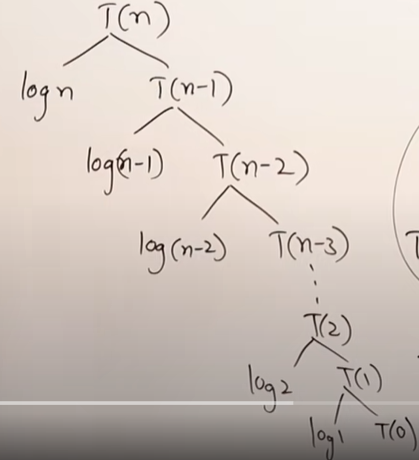 T(n)
log n T(n-1)
log(n-1) T(n-2)
log(n-2) T(n-3)
T(2)
log2 T(1)
log1 T(0)
T